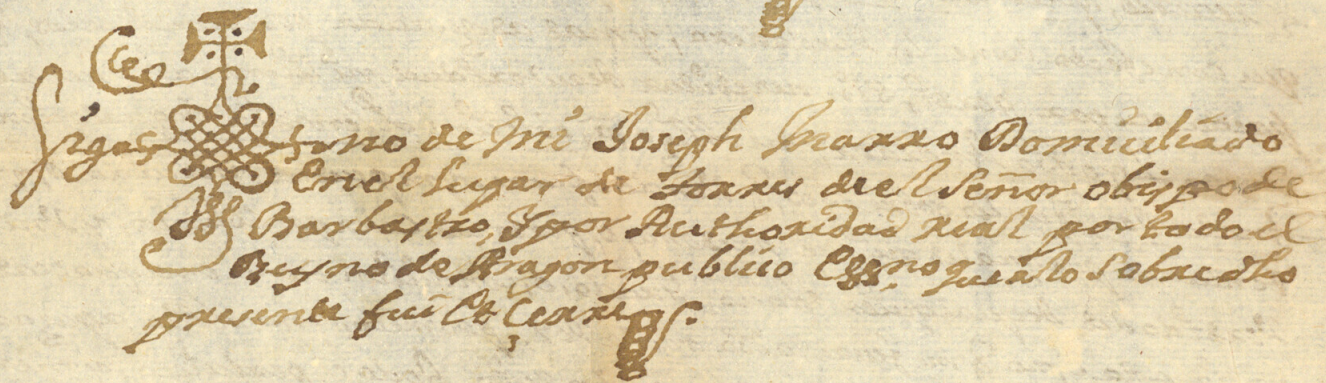 Sig no de Mi Joseph Marro Domiciliado
En el Lugar de Torres del Señor obispo de
Barbastro, Y por Authoridad real por todo el
Reyno de Aragon publico Essno. que a lo Sobredho
presente fui Et Cerre